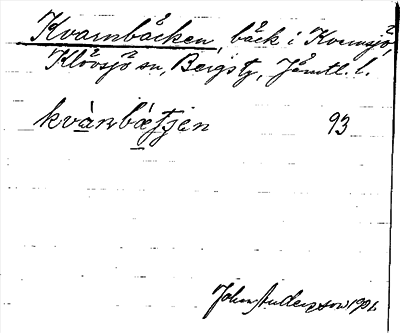 Kvarnbäcken, bäck i Kvarnsjö,
Klövsjö sn, Bergs tg, Jämtl. l.
kvàrnbætjen 93
John Andersson 1901.